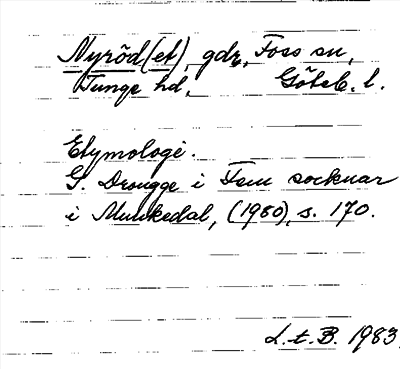 Nyröd(et), gdr, Foss sn,
Tunge hd, Göteb. l.
Etymologi.
G. Drougge i Fem socknar
i Munkedal, (1980), s. 170.
L.t.B. 1983.